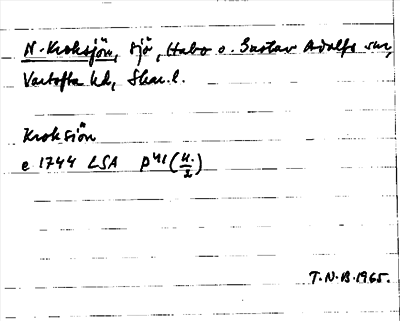 N. Kroksjön, sjö, Habo o. Gustav Adolfs snr,
Vartofta hd, Skar. l.
Kroksiön
e 1744 LSA P41 (U./2)
T.N.B. 1965.